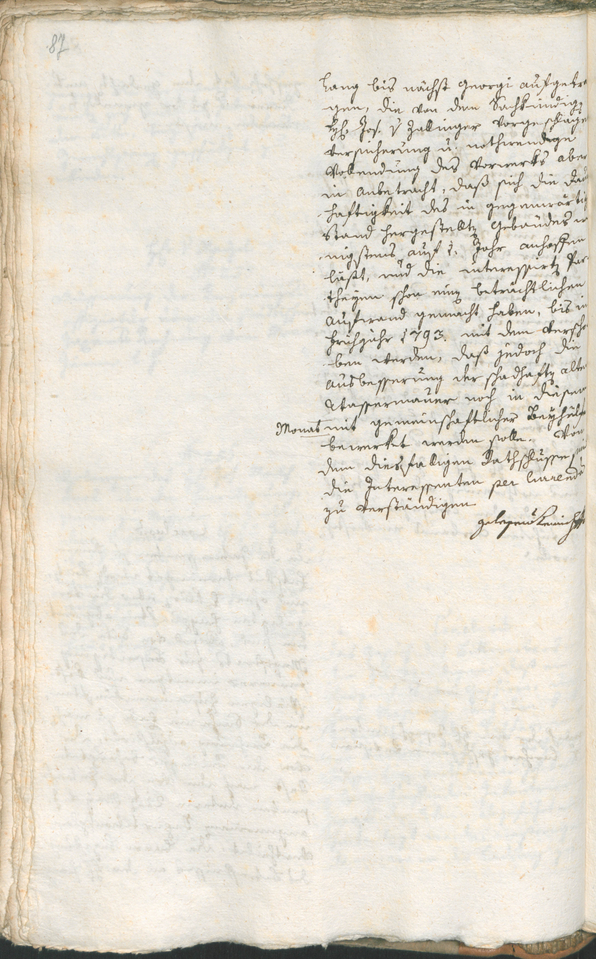 87
hang bis nächst Georgi aufgetra
gen, die von dem Sachkundig
H. Jos. v Zallinger vorgeschlage
Versicherung u. nothwendige
Vollendung des Vorwerks aber
in Anbetracht, daß sich die Dau
haftigkeit des in gegenwärtig
Stand hergestellte Gebäudes
nigstens auf 1. Jahr anhoffen
läßt, und die interessirte Par
theyen schon einen beträchtlichen
Aufwand gemacht haben, bis in
Frühjahr 1793. mit dem versch
ben werden, daß jedoch die
Ausbesserung der schadhafte alte
Wassermauer noch in diesem
Monat mit gemeinschaftlicher Beyhülfe
bewerket werden solle. Von
dem diesfälligen Rathschlusse
die Interessenten per
zu verständigen